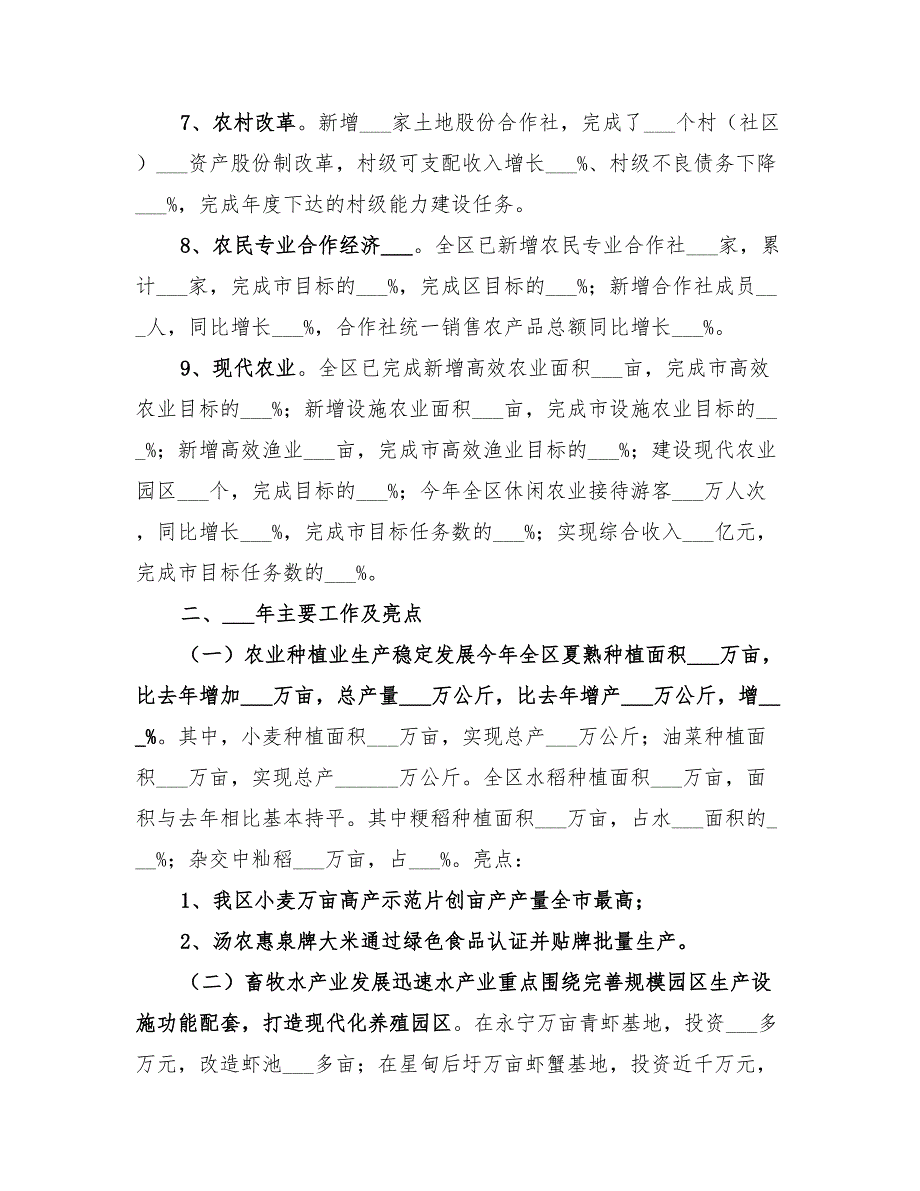 7、农村改革。新增___家土地股份合作社，完成了___个村（社区
）___资产股份制改革，村级可支配收入增长___%、村级不良债务下降
___%，完成年度下达的村级能力建设任务。
8、农民专业合作经济___。全区已新增农民专业合作社___家，累
计___家，完成市目标的___%，完成区目标的___%；新增合作社成员__
_人，同比增长___%，合作社统一销售农产品总额同比增长___%。
9、现代农业。全区已完成新增高效农业面积___亩，完成市高效
农业目标的___%；新增设施农业面积___亩，完成市设施农业目标的__
_%；新增高效渔业___亩，完成市高效渔业目标的___%；建设现代农业
园区___个，完成目标的___%；今年全区休闲农业接待游客___万人次
，同比增长___%，完成市目标任务数的___%；实现综合收入___亿元，
完成市目标任务数的___%。
二、___年主要工作及亮点
（一）农业种植业生产稳定发展今年全区夏熟种植面积___万亩，
比去年增加___万亩，总产量___万公斤，比去年增产___万公斤，增__
_%。其中，小麦种植面积___万亩，实现总产___万公斤；油菜种植面
积___万亩，实现总产______万公斤。全区水稻种植面积___万亩，面
积与去年相比基本持平。其中粳稻种植面积___万亩，占水___面积的_
__%；杂交中籼稻___万亩，占___%。亮点：
1、我区小麦万亩高产示范片创亩产产量全市最高；
2、汤农惠泉牌大米通过绿色食品认证并贴牌批量生产。
（二）畜牧水产业发展迅速水产业重点围绕完善规模园区生产设
施功能配套，打造现代化养殖园区。在永宁万亩青虾基地，投资___多
万元，改造虾池___多亩；在星甸后圩万亩虾蟹基地，投资近千万元，